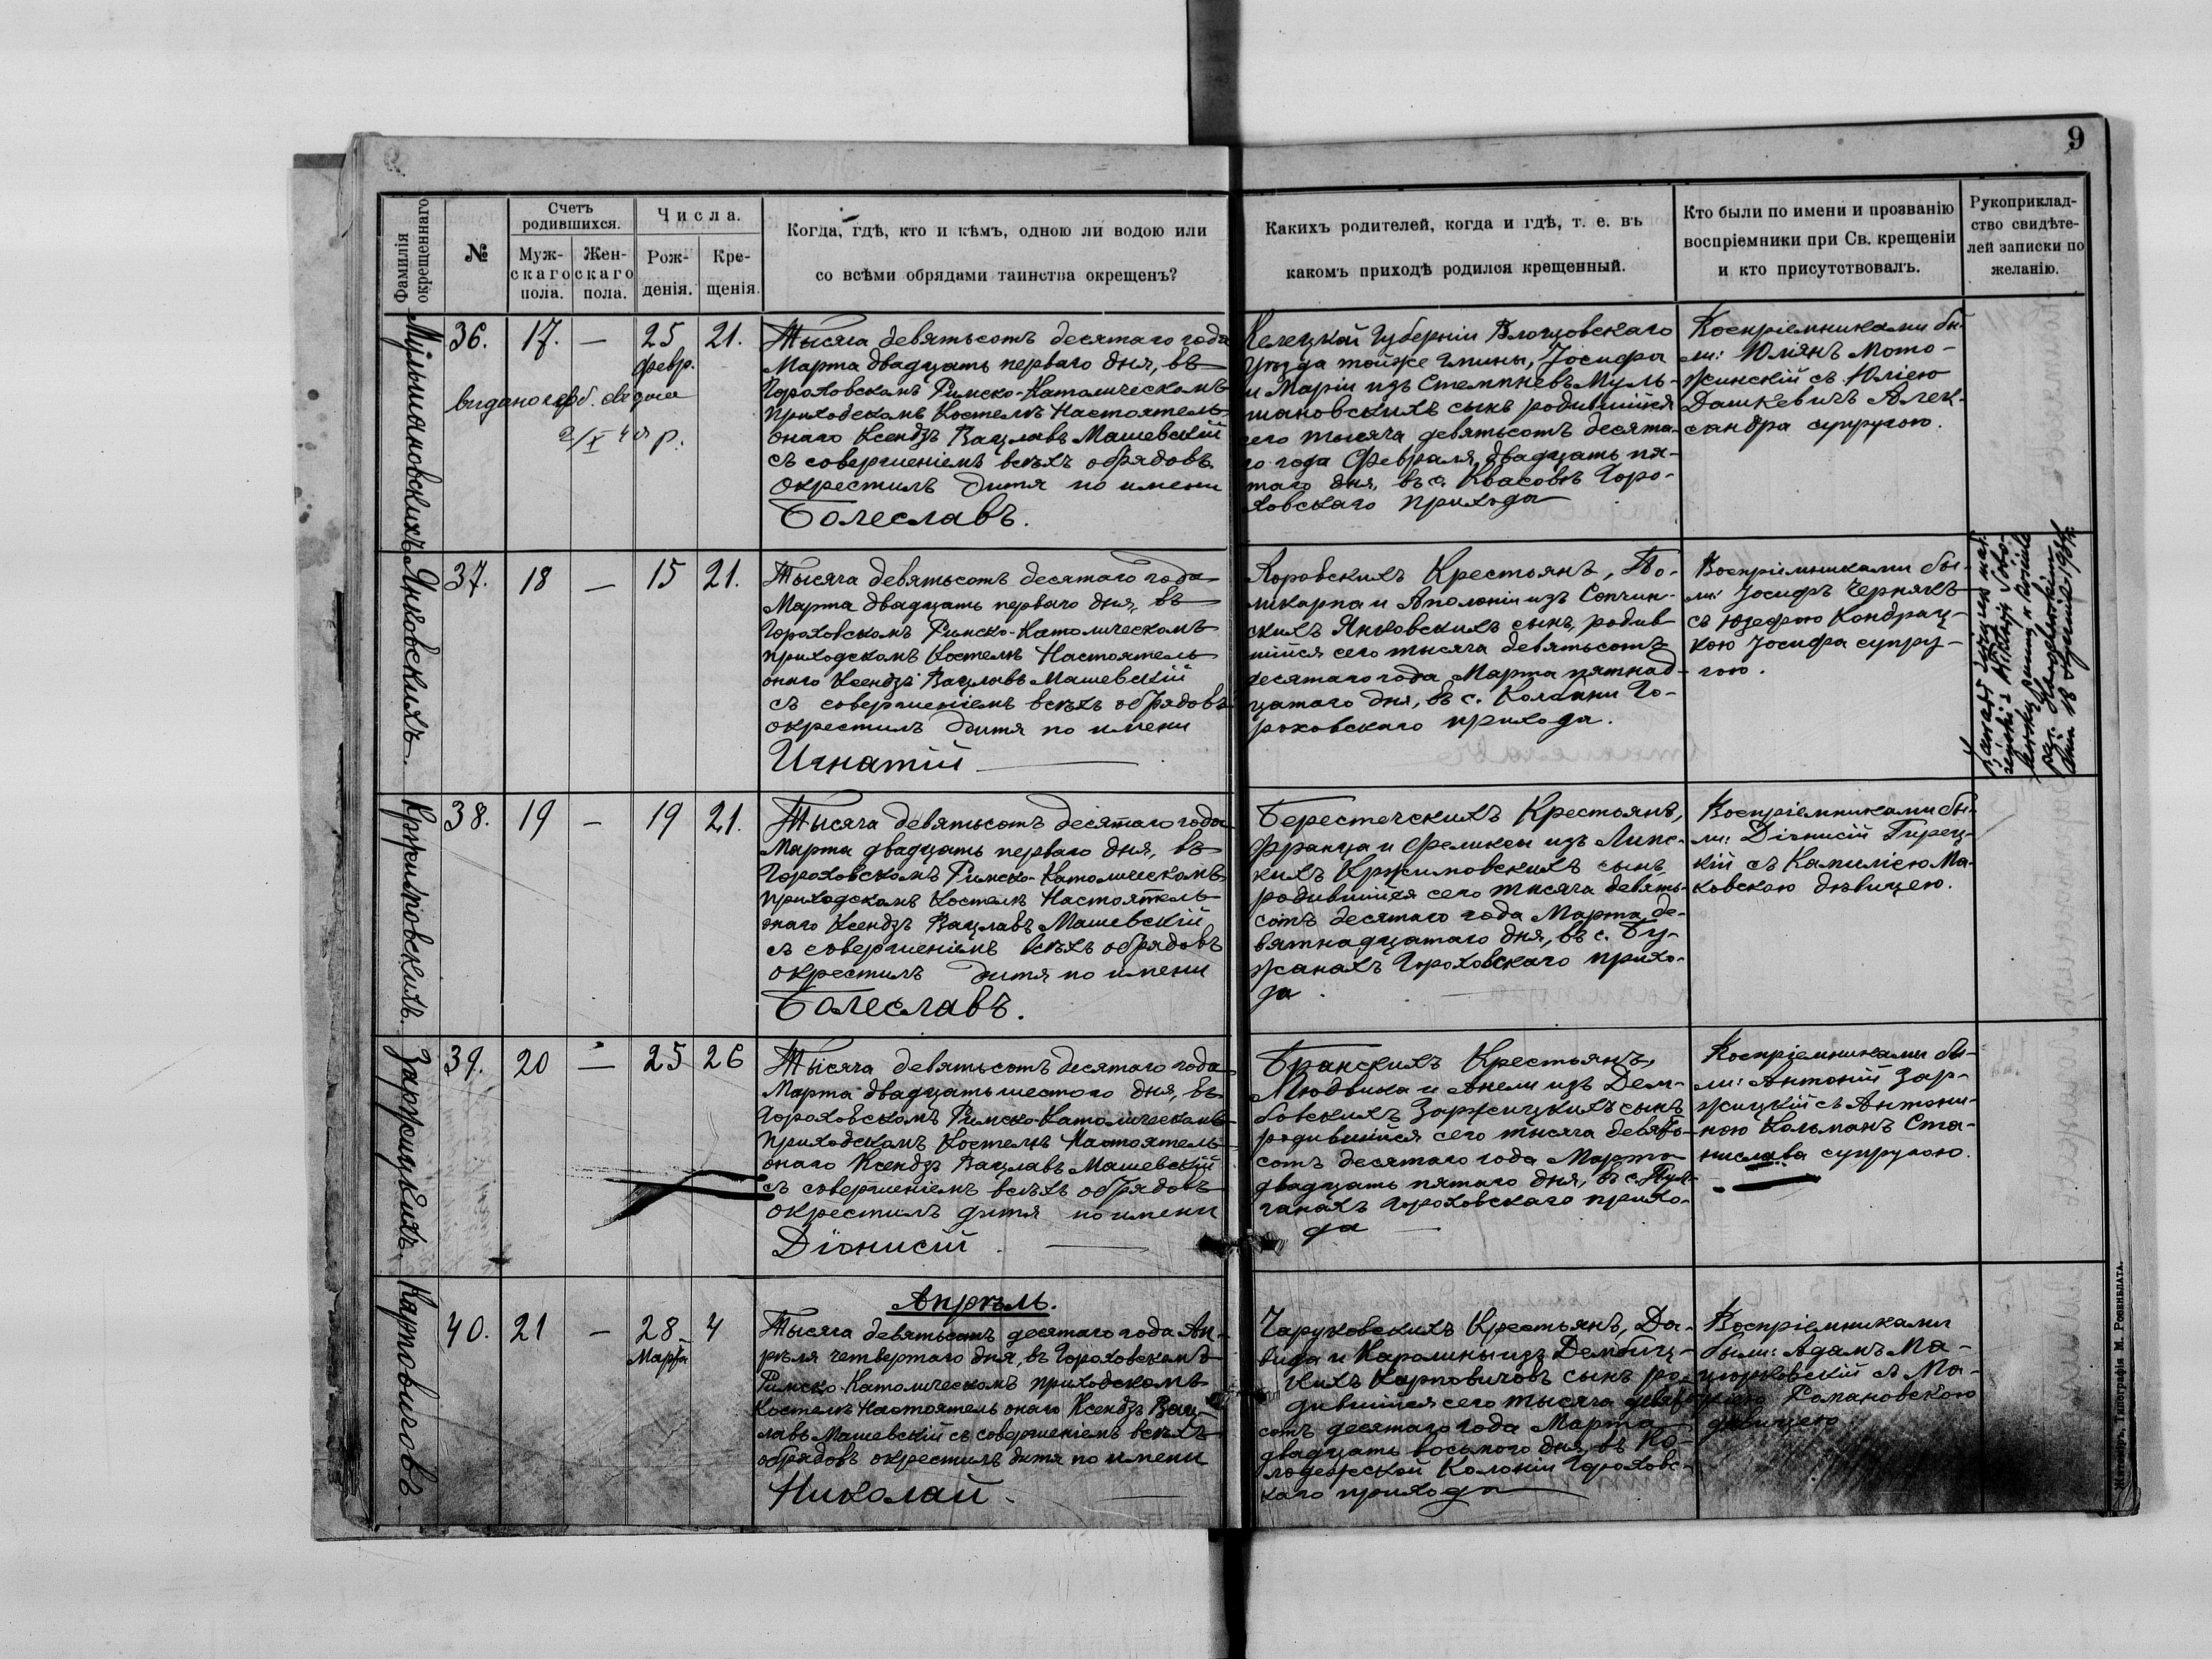 9
Фамилія
окрещеннаго
№
Счетъ
родившихся.
Муж-
скаго
пола.
Жен-
скаго
пола.
Числа.
Рож-
денія.
Кре-
щенія.
Когда, гдѣ, кто и кѣмъ, одною ли водою или
со всѣми обрядами таинства окрещенъ?
Какихъ родителей, когда и гдѣ, т. е. въ
какомъ приходѣ родился крещенный.
Кто были по имени и прозванію
воспріемники при Св. крещеніи
и кто присутствовалъ.
Рукоприклад-
ство свидѣте-
лей записки по
желанію.
Мульшановскихъ
36.
17.
—
25
февр.
21.
видано
2/X 40 р.
Тысяча девятьсотъ десятаго года
Марта двадцать перваго дня, въ
Гороховскомъ Римско-Католическомъ
Приходскомъ Костелѣ Настоятель
онаго Ксендзъ Вацлавъ Машевскій
съ совершеніемъ всѣхъ обрядовъ
окрестилъ дитя по имени
Болеславъ.
Келецкой Губерніи Влощовскаго
Уѣзда тойже гмины, Іосифа
и Маріи изъ Стемпнёвъ Муль-
шановскихъ сынъ родившійся
сего тысяча девятьсотъ десята-
го года Февраля двадцать пя-
таго дня, въ с. Квасовѣ Горо-
ховскаго прихода
Воспріемниками бы-
ли: Юліянъ Мото-
жинскій съ Юліею
Дашкевичъ Алек-
сандра супругою.
Янковскихъ.
37.
18
—
15
21.
Тысяча девятьсотъ десятаго года
Марта двадцать перваго дня, въ
Гороховскомъ Римско-Католическомъ
приходскомъ Костелѣ Настоятель
онаго Ксендзъ Вацлавъ Машевскій
съ совершеніемъ всѣхъ обрядовъ
окрестилъ дитя по имени
Игнатій
Яоровскихъ Крестьянъ, По-
ликарпа и Аполоніи изъ Сопчин-
скихъ Янковскихъ сынъ, родив
шійся сего тысяча девятьсотъ
десятаго года Марта пятнад-
цатаго дня, въ с. Колпани Го-
роховскаго прихода.
Воспріемниками бы-
ли: Іосифъ Чернякъ
съ Юзефою Кондрац-
кою Іосифа супру-
гою.
Кржимовскихъ.
38.
19
—
19
21.
Тысяча девятьсотъ десятаго года
Марта двадцать перваго дня, въ
Гороховскомъ Римско-Католическомъ
приходскомъ Костелѣ Настоятель
онаго Ксендзъ Вацлавъ Машевскій
съ совершеніемъ всѣхъ обрядовъ
окрестилъ дитя по имени
Болеславъ.
Берестечскихъ Крестьянъ,
Франца и Феликсы изъ Липс-
кихъ Кржимовскихъ сынъ
родившійся сего тысяча девять-
сотъ десятаго года Марта де-
вятнадцатаго дня, въ с. Бу-
жанахъ Гороховскаго прихо-
да.
Воспріемниками бы-
ли: Діонисій Гирец-
кій съ Камиліею Ма-
ковскою дѣвицею.
Заржицкихъ.
39.
20
—
25
26
Тысяча девятьсотъ десятаго года
Марта двадцать шестого дня, въ
Гороховскомъ Римско-Католическомъ
Приходскомъ Костелѣ Настоятель
онаго Ксендзъ Вацлавъ Машевскій
съ совершеніемъ всѣхъ обрядовъ
окрестилъ дитя по имени
Діонисій.
Бранскихъ Крестьянъ,
Людвика и Анели изъ Дем-
бовскихъ Заржицкихъ сынъ
родившійся сего тысяча девять-
сотъ десятаго года Марта
двадцать пятаго дня, въ с. Пул-
ганахъ Гороховскаго прихо-
да
Воспріемниками бы-
ли: Антоній Зар-
жицкій съ Антони-
ною Кольманъ Ста-
нислава супругою.
Карповичовъ
40.
21
—
28
Марта
4
Апрѣль.
Тысяча девятьсотъ десятаго года Ап-
рѣля четвертаго дня, въ Гороховскомъ
Римско-Католическомъ приходскомъ
Костелѣ Настоятель онаго Ксендзъ Вац-
лавъ Машевскій съ совершеніемъ всѣхъ
обрядовъ окрестилъ дитя по имени
Николай.
Чаруковскихъ Крестьянъ, Да-
вида и Каролины изъ Дембиц-
кихъ Карповичовъ сынъ ро-
дившійся сего тысяча девять
сотъ десятаго года Марта
двадцать восьмого дня, въ Ко-
лодежской Колоніи Гороховс-
каго прихода
Воспріемниками
были: Адамъ Ма-
цюрковскій съ Ма-
ріею Романовскою
дѣвицею.
Житоміръ, Типографія М. Розенблата.